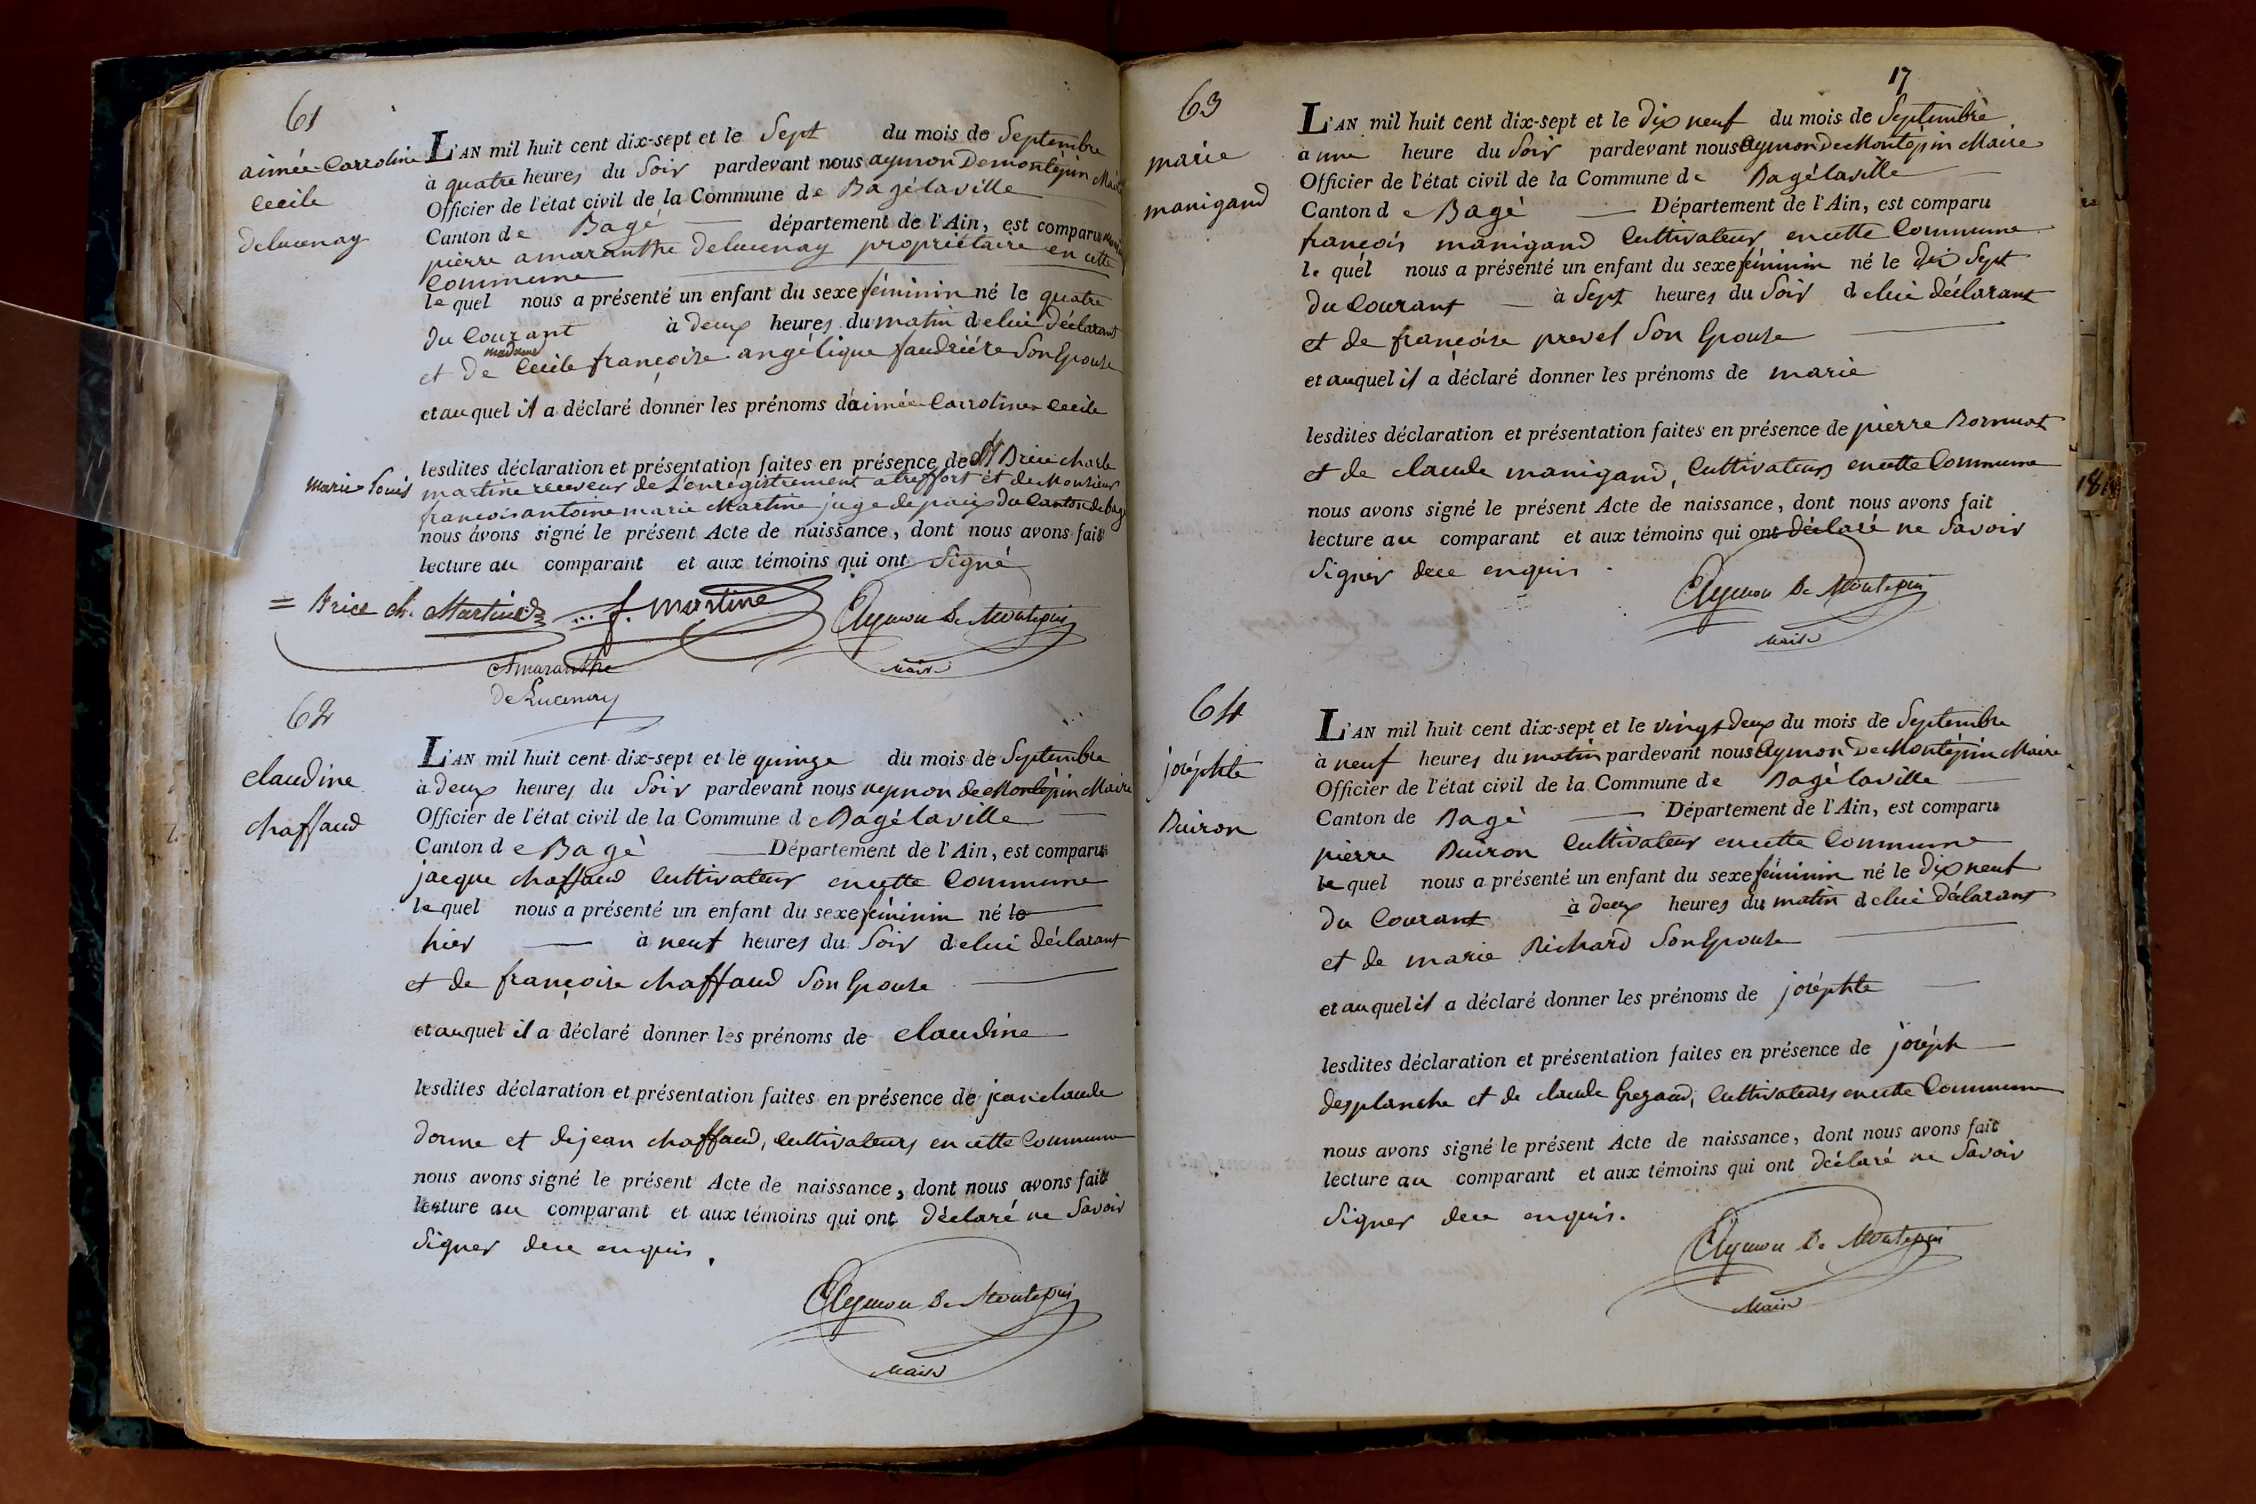 61
aimée Carroline
Cecile
Delucenay
L'AN mil huit cent dix-sept et le Sept du mois de Septembre
à quatre heures du Soir pardevant nous aymon Demontépin Maire
Officier de l'état civil de la Commune de Bagélaville
Canton de Bagé département de l'Ain, est comparu
pierre amaranthe delucenay propriétaire en cette
Commune
le quel nous a présenté un enfant du sexe féminin né le quatre
du Courant à deux heures du matin de lui déclarant
madame
et de Cecile françoise angélique faudriére Son Epouse
et au quel il a déclaré donner les prénoms d'aimée Carroline Cecile
lesdites déclaration et présentation faites en présence de Mr Brice charle
marie Louis martine receveur de L'enregistrement a treffort et de Monsieur
francois antoine marie Martine juge de paix du Canton de bagé
nous avons signé le présent Acte de naissance, dont nous avons fait
lecture au comparant et aux témoins qui ont Signé
Brice ch. Martine f. martine Aymon De Montepin
Maire
Amaranthe
de Lucenay
62
claudine
chaffaud
L'AN mil huit cent dix-sept et le quinze du mois de Septembre
à deux heures du Soir pardevant nous aymon de Montépin Maire
Officier de l'état civil de la Commune de Bagélaville
Canton de Bagé Département de l'Ain, est comparu
jacque chaffaud Cultivateur en cette Commune
le quel nous a présenté un enfant du sexe féminin né le
hier à neuf heures du Soir de lui déclarant
et de françoise chaffaud Son Epouse
et auquel il a déclaré donner les prénoms de claudine
lesdites déclaration et présentation faites en présence de jean claude
donne et de jean chaffaud, Cultivateurs en cette Commune
nous avons signé le présent Acte de naissance, dont nous avons fait
lecture au comparant et aux témoins qui ont déclaré ne Savoir
Signer dece enquis.
Aymon De Montepin
Maire
17
63
marie
manigand
L'AN mil huit cent dix-sept et le dix neuf du mois de Septembre
à une heure du Soir pardevant nous Aymon De Montépin Maire
Officier de l'état civil de la Commune de Bagélaville
Canton de Bagé Département de l'Ain, est comparu
françois manigand Cultivateur en cette Commune
le quel nous a présenté un enfant du sexe féminin né le dix Sept
du Courant à Sept heures du Soir de lui déclarant
et de françoise prevel Son Epouse
et auquel il a déclaré donner les prénoms de marie
lesdites déclaration et présentation faites en présence de pierre
et de claude manigand, Cultivateurs en cette Commune
nous avons signé le présent Acte de naissance, dont nous avons fait
lecture au comparant et aux témoins qui ont déclaré ne Savoir
Signer dece enquis.
Aymon De Montepin
Maire
64
joséphte
Buiron
L'AN mil huit cent dix-sept et le vingt deux du mois de Septembre
à neuf heures du matin pardevant nous Aymon De Montépin Maire
Officier de l'état civil de la Commune de Bagélaville
Canton de Bagé Département de l'Ain, est comparu
pierre Buiron Cultivateur en cette Commune
le quel nous a présenté un enfant du sexe féminin né le dix neuf
du Courant à deux heures du matin de lui déclarant
et de marie Richard Son Epouse
et auquel il a déclaré donner les prénoms de joséphte
lesdites déclaration et présentation faites en présence de joséph
desplanche et de claude Grezaud, Cultivateurs en cette Commune
nous avons signé le présent Acte de naissance, dont nous avons fait
lecture au comparant et aux témoins qui ont déclaré ne Savoir
Signer dece enquis.
Aymon De Montepin
Maire